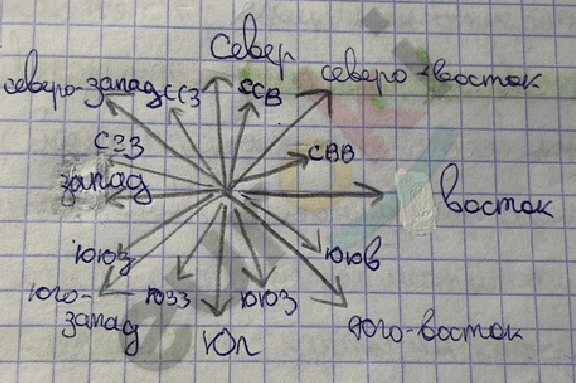 Север
северо-запад ССЗ ССВ северо-восток
СЗЗ СВВ
запад восток
ююз ююв
юго-запад юзз ююз юго-восток
Юг